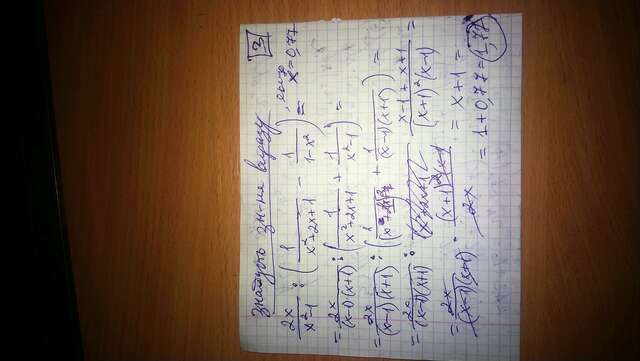 Знайдіть зн-ня виразу [3]
2x/(x²-1) : (1/(x²+2x+1) - 1/(1-x²)), якщо x=0,77 =
= 2x/((x-1)(x+1)) : (1/(x²+2x+1) + 1/(x²-1)) =
= 2x/((x-1)(x+1)) : (1/ + 1/((x-1)(x+1))) =
= 2x/((x-1)(x+1)) : (x-1+x+1)/((x+1)²(x-1)) =
= 2x/((x-1)(x+1)) · ((x+1)²(x-1))/2x = x+1 =
= 1+0,77=1,77